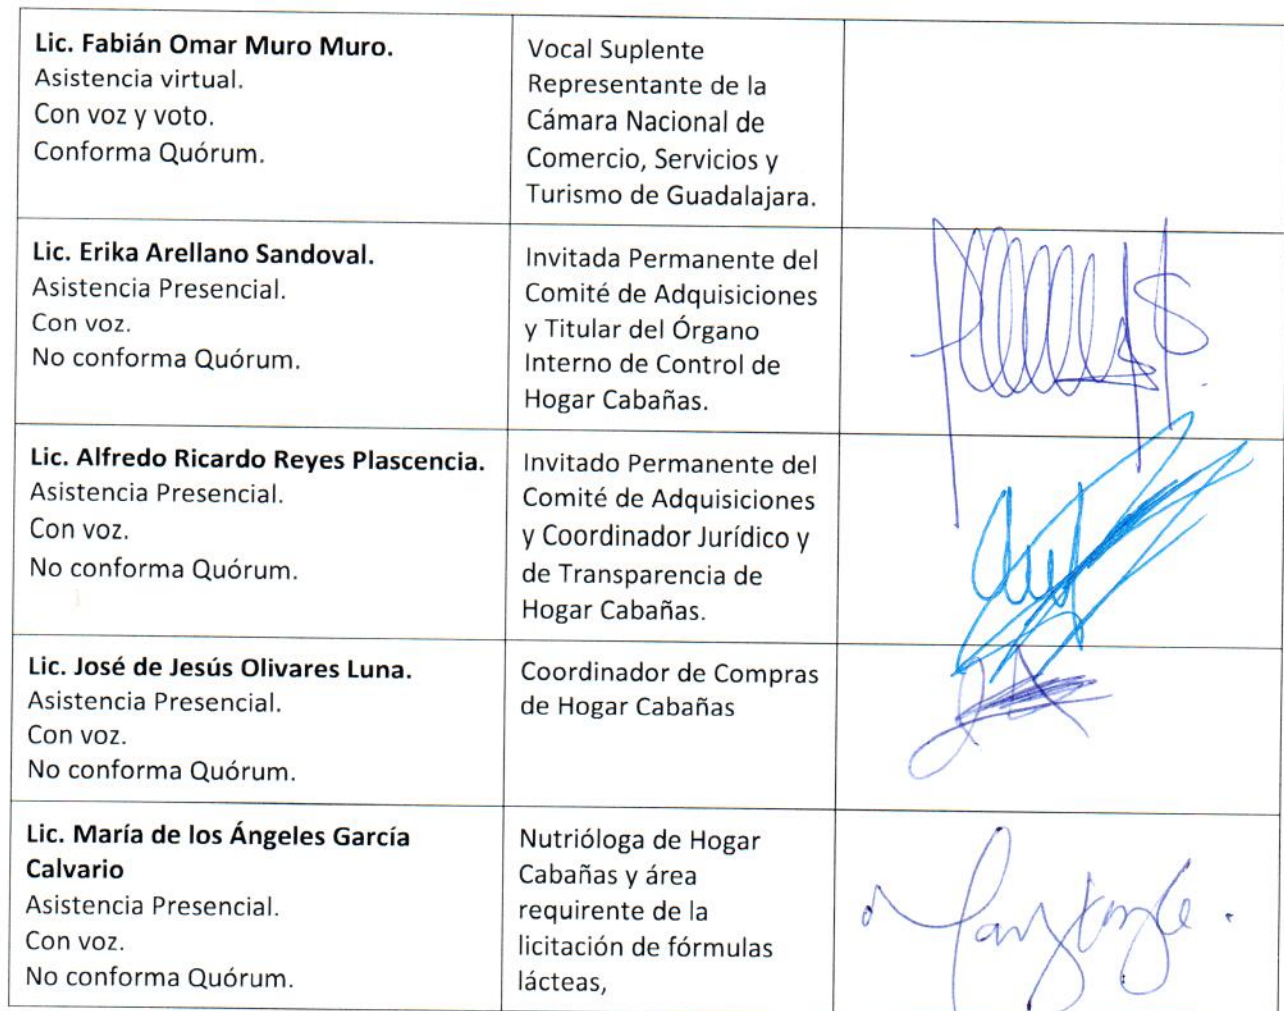 Lic. Fabián Omar Muro Muro.
Asistencia virtual.
Con voz y voto.
Conforma Quórum.
Vocal Suplente
Representante de la
Cámara Nacional de
Comercio, Servicios y
Turismo de Guadalajara.
Lic. Erika Arellano Sandoval.
Asistencia Presencial.
Con voz.
No conforma Quórum.
Invitada Permanente del
Comité de Adquisiciones
y Titular del Órgano
Interno de Control de
Hogar Cabañas.
Lic. Alfredo Ricardo Reyes Plascencia.
Asistencia Presencial.
Con voz.
No conforma Quórum.
Invitado Permanente del
Comité de Adquisiciones
y Coordinador Jurídico y
de Transparencia de
Hogar Cabañas.
Lic. José de Jesús Olivares Luna.
Asistencia Presencial.
Con voz.
No conforma Quórum.
Coordinador de Compras
de Hogar Cabañas
Lic. María de los Ángeles García
Calvario
Asistencia Presencial.
Con voz.
No conforma Quórum.
Nutrióloga de Hogar
Cabañas y área
requirente de la
licitación de fórmulas
lácteas,